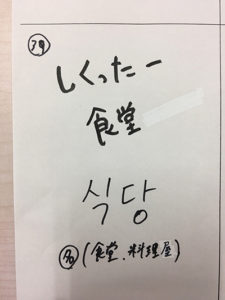 39
しくったー
食堂
식당
名(食堂、料理屋)